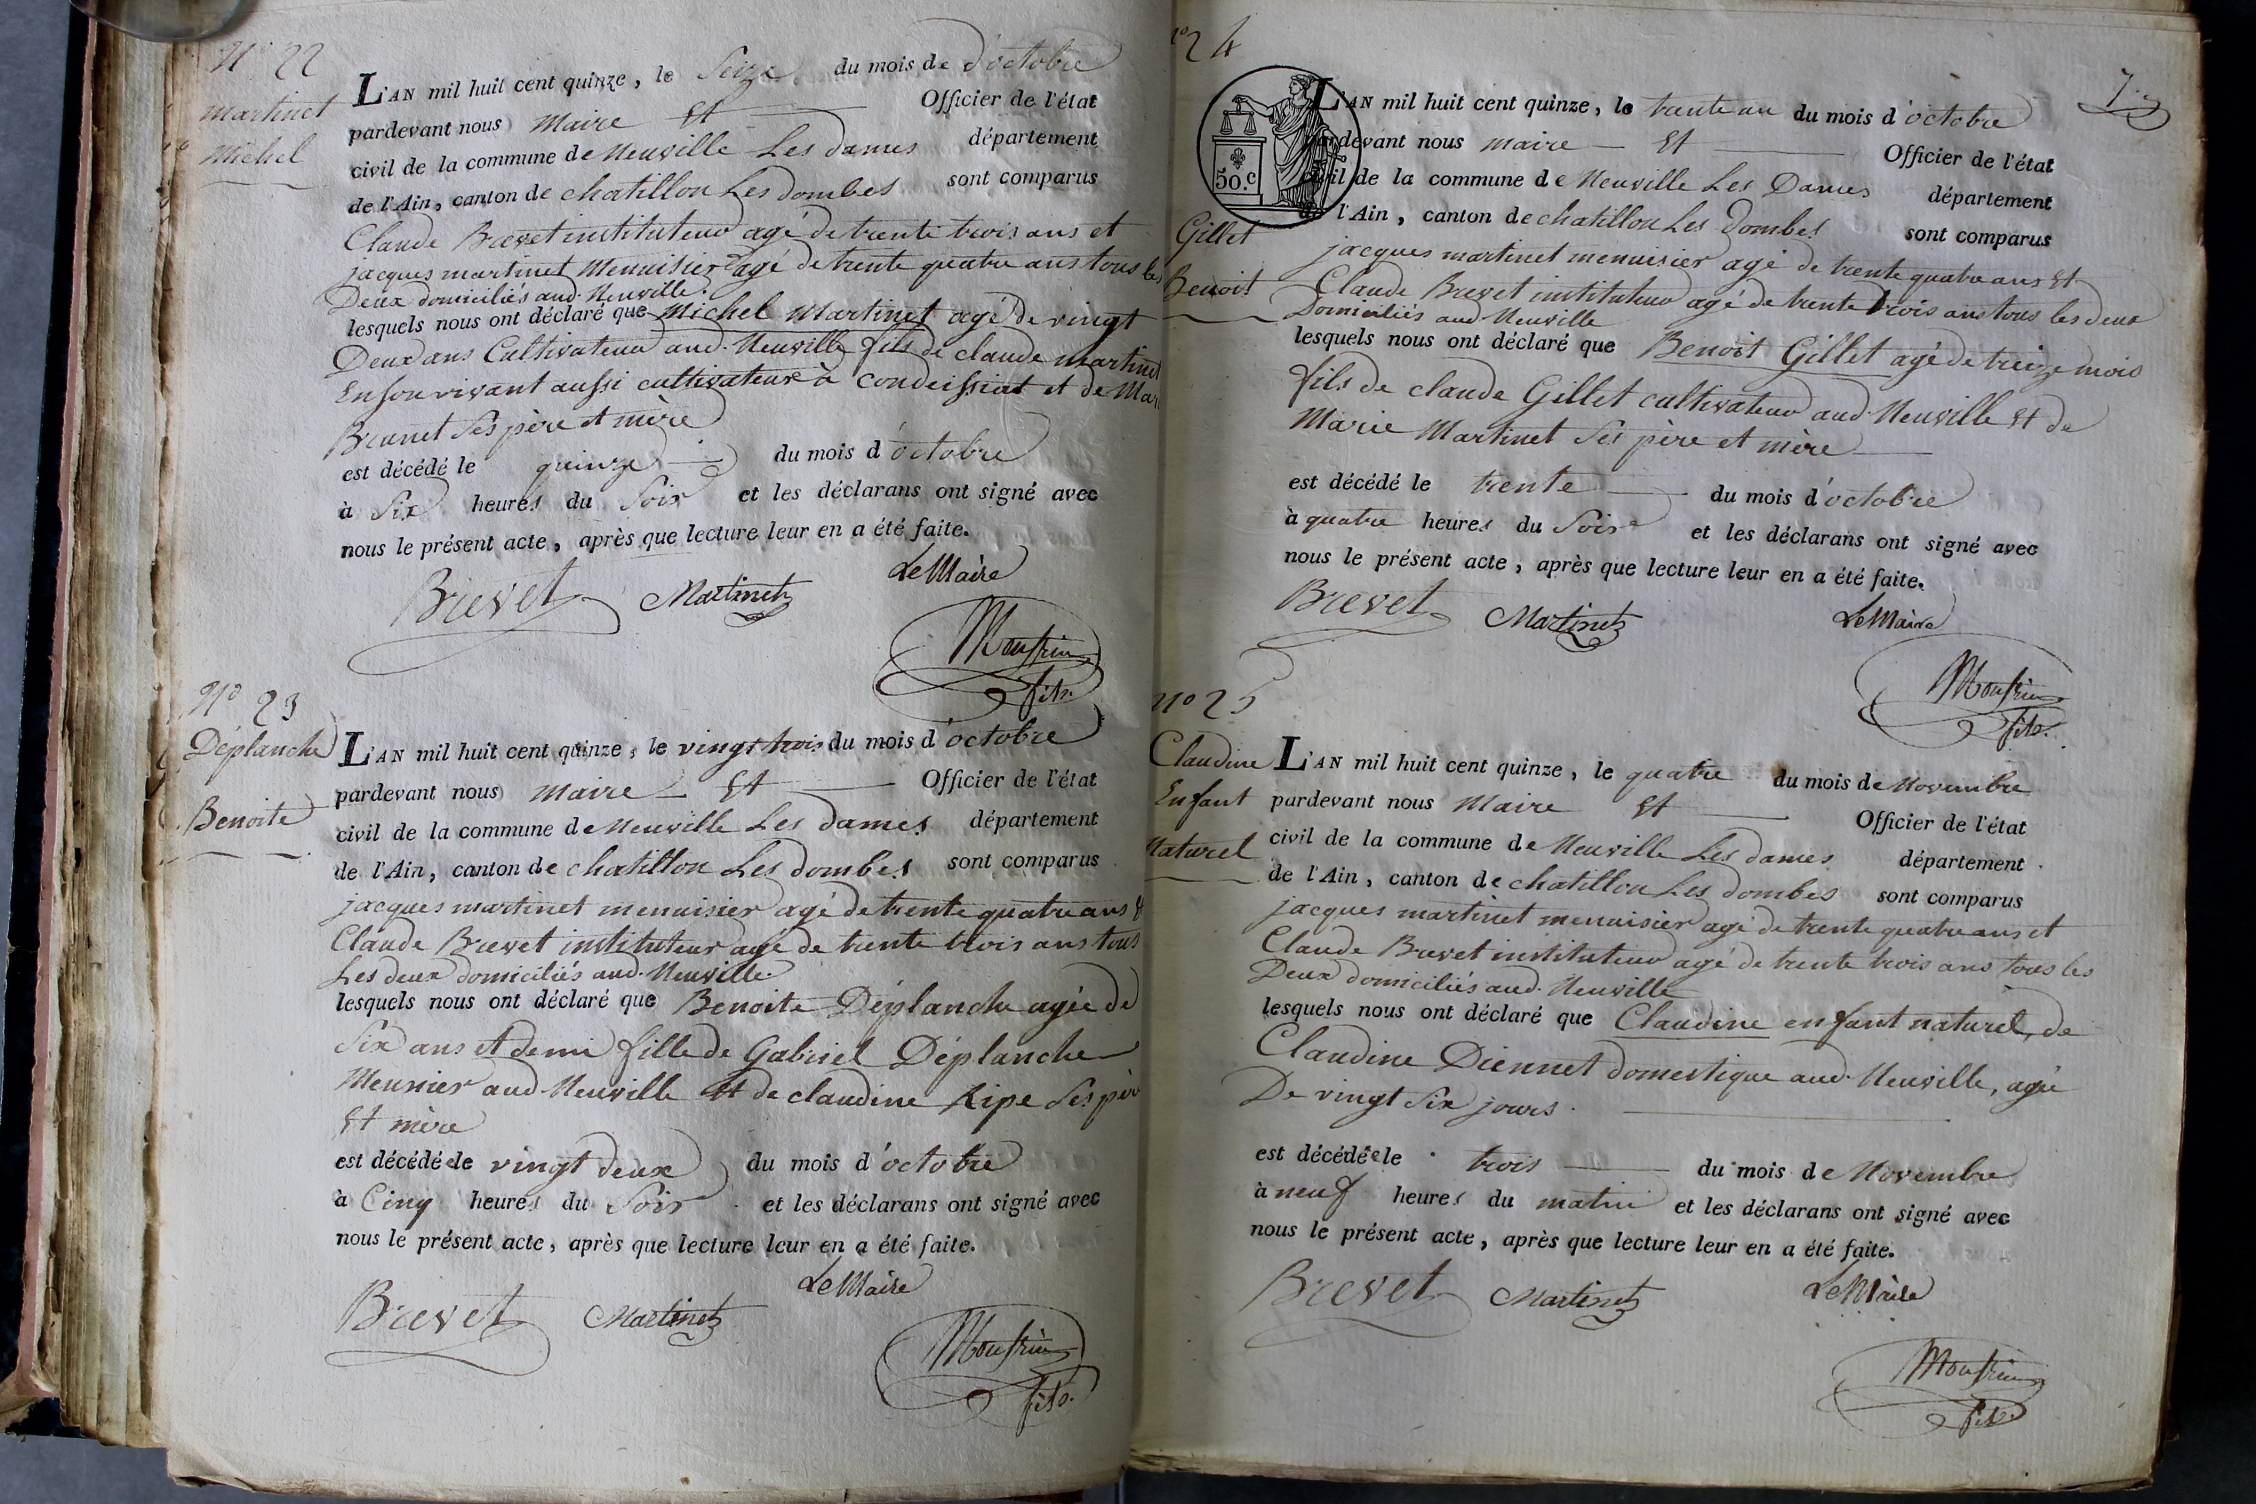 N° 22
Martinet
Michel
L'AN mil huit cent quinze, le Seize du mois de d'octobre
pardevant nous Maire Et Officier de l'état
civil de la commune de Neuville Les Dames département
de l'Ain, canton de chatillon Les dombes sont comparus
Claude Brevet instituteur agé de trente trois ans et
jacques martinet Menuisier agé de trente quatre ans tous les
Deux domiciliés aud. Neuville.
lesquels nous ont déclaré que Michel Martinet agé de vingt
Deux ans Cultivateur aud. Neuville fils de claude martinet
En son vivant aussi cultivateur à Condeissiat et de Mar
Brunet Ses père et mère
est décédé le quinze du mois d'octobre
à Six heures du Soir et les déclarans ont signé avec
nous le présent acte, après que lecture leur en a été faite.
Brevet Martinet Le Maire
fils.
N° 23
Déplanche
Benoite
L'AN mil huit cent quinze, le vingt trois du mois d'octobre
pardevant nous Maire Et Officier de l'état
civil de la commune de Neuville Les Dames département
de l'Ain, canton de chatillon Les dombes sont comparus
jacques martinet menuisier agé de trente quatre ans &
Claude Brevet instituteur agé de trente trois ans tous
Les deux domiciliés aud. Neuville.
lesquels nous ont déclaré que Benoite Déplanche agée de
Six ans et demi fille de Gabriel Déplanche
Meunier aud Neuville Et de claudine Ripe Ses père
Et mère
est décédée le vingt deux du mois d'octobre
à Cinq heures du Soir et les déclarans ont signé avec
nous le présent acte, après que lecture leur en a été faite.
Brevet Martinet Le Maire
fils.
N° 24
7.
50.c
Gillet
Benoit
L'AN mil huit cent quinze, le trente un du mois d'octobre
pardevant nous maire Et Officier de l'état
civil de la commune de Neuville Les Dames département
de l'Ain, canton de chatillon Les Dombes sont comparus
jacques martinet menuisier agé de trente quatre ans Et
Claude Brevet instituteur agé de trente trois ans tous les deux
Domiciliés aud Neuville
lesquels nous ont déclaré que Benoit Gillet agé de treize mois
fils de claude Gillet cultivateur aud Neuville Et de
Marie Martinet Ses père et mère
est décédé le trente du mois d'octobre
à quatre heures du Soir et les déclarans ont signé avec
nous le présent acte, après que lecture leur en a été faite.
Brevet Martinet Le Maire
fils.
N° 25
Claudine
Enfant
Naturel
L'AN mil huit cent quinze, le quatre du mois de Novembre
pardevant nous Maire Et Officier de l'état
civil de la commune de Neuville Les dames département
de l'Ain, canton de chatillon Les Dombes sont comparus
jacques martinet menuisier agé de trente quatre ans et
Claude Brevet instituteur agé de trente trois ans tous les
Deux domiciliés aud. Neuville
lesquels nous ont déclaré que Claudine enfant naturel, de
Claudine Diennet domestique aud. Neuville, agée
De vingt Six jours.
est décédée le trois du mois de Novembre
à neuf heures du matin et les déclarans ont signé avec
nous le présent acte, après que lecture leur en a été faite.
Brevet Martinet Le Maire
fils